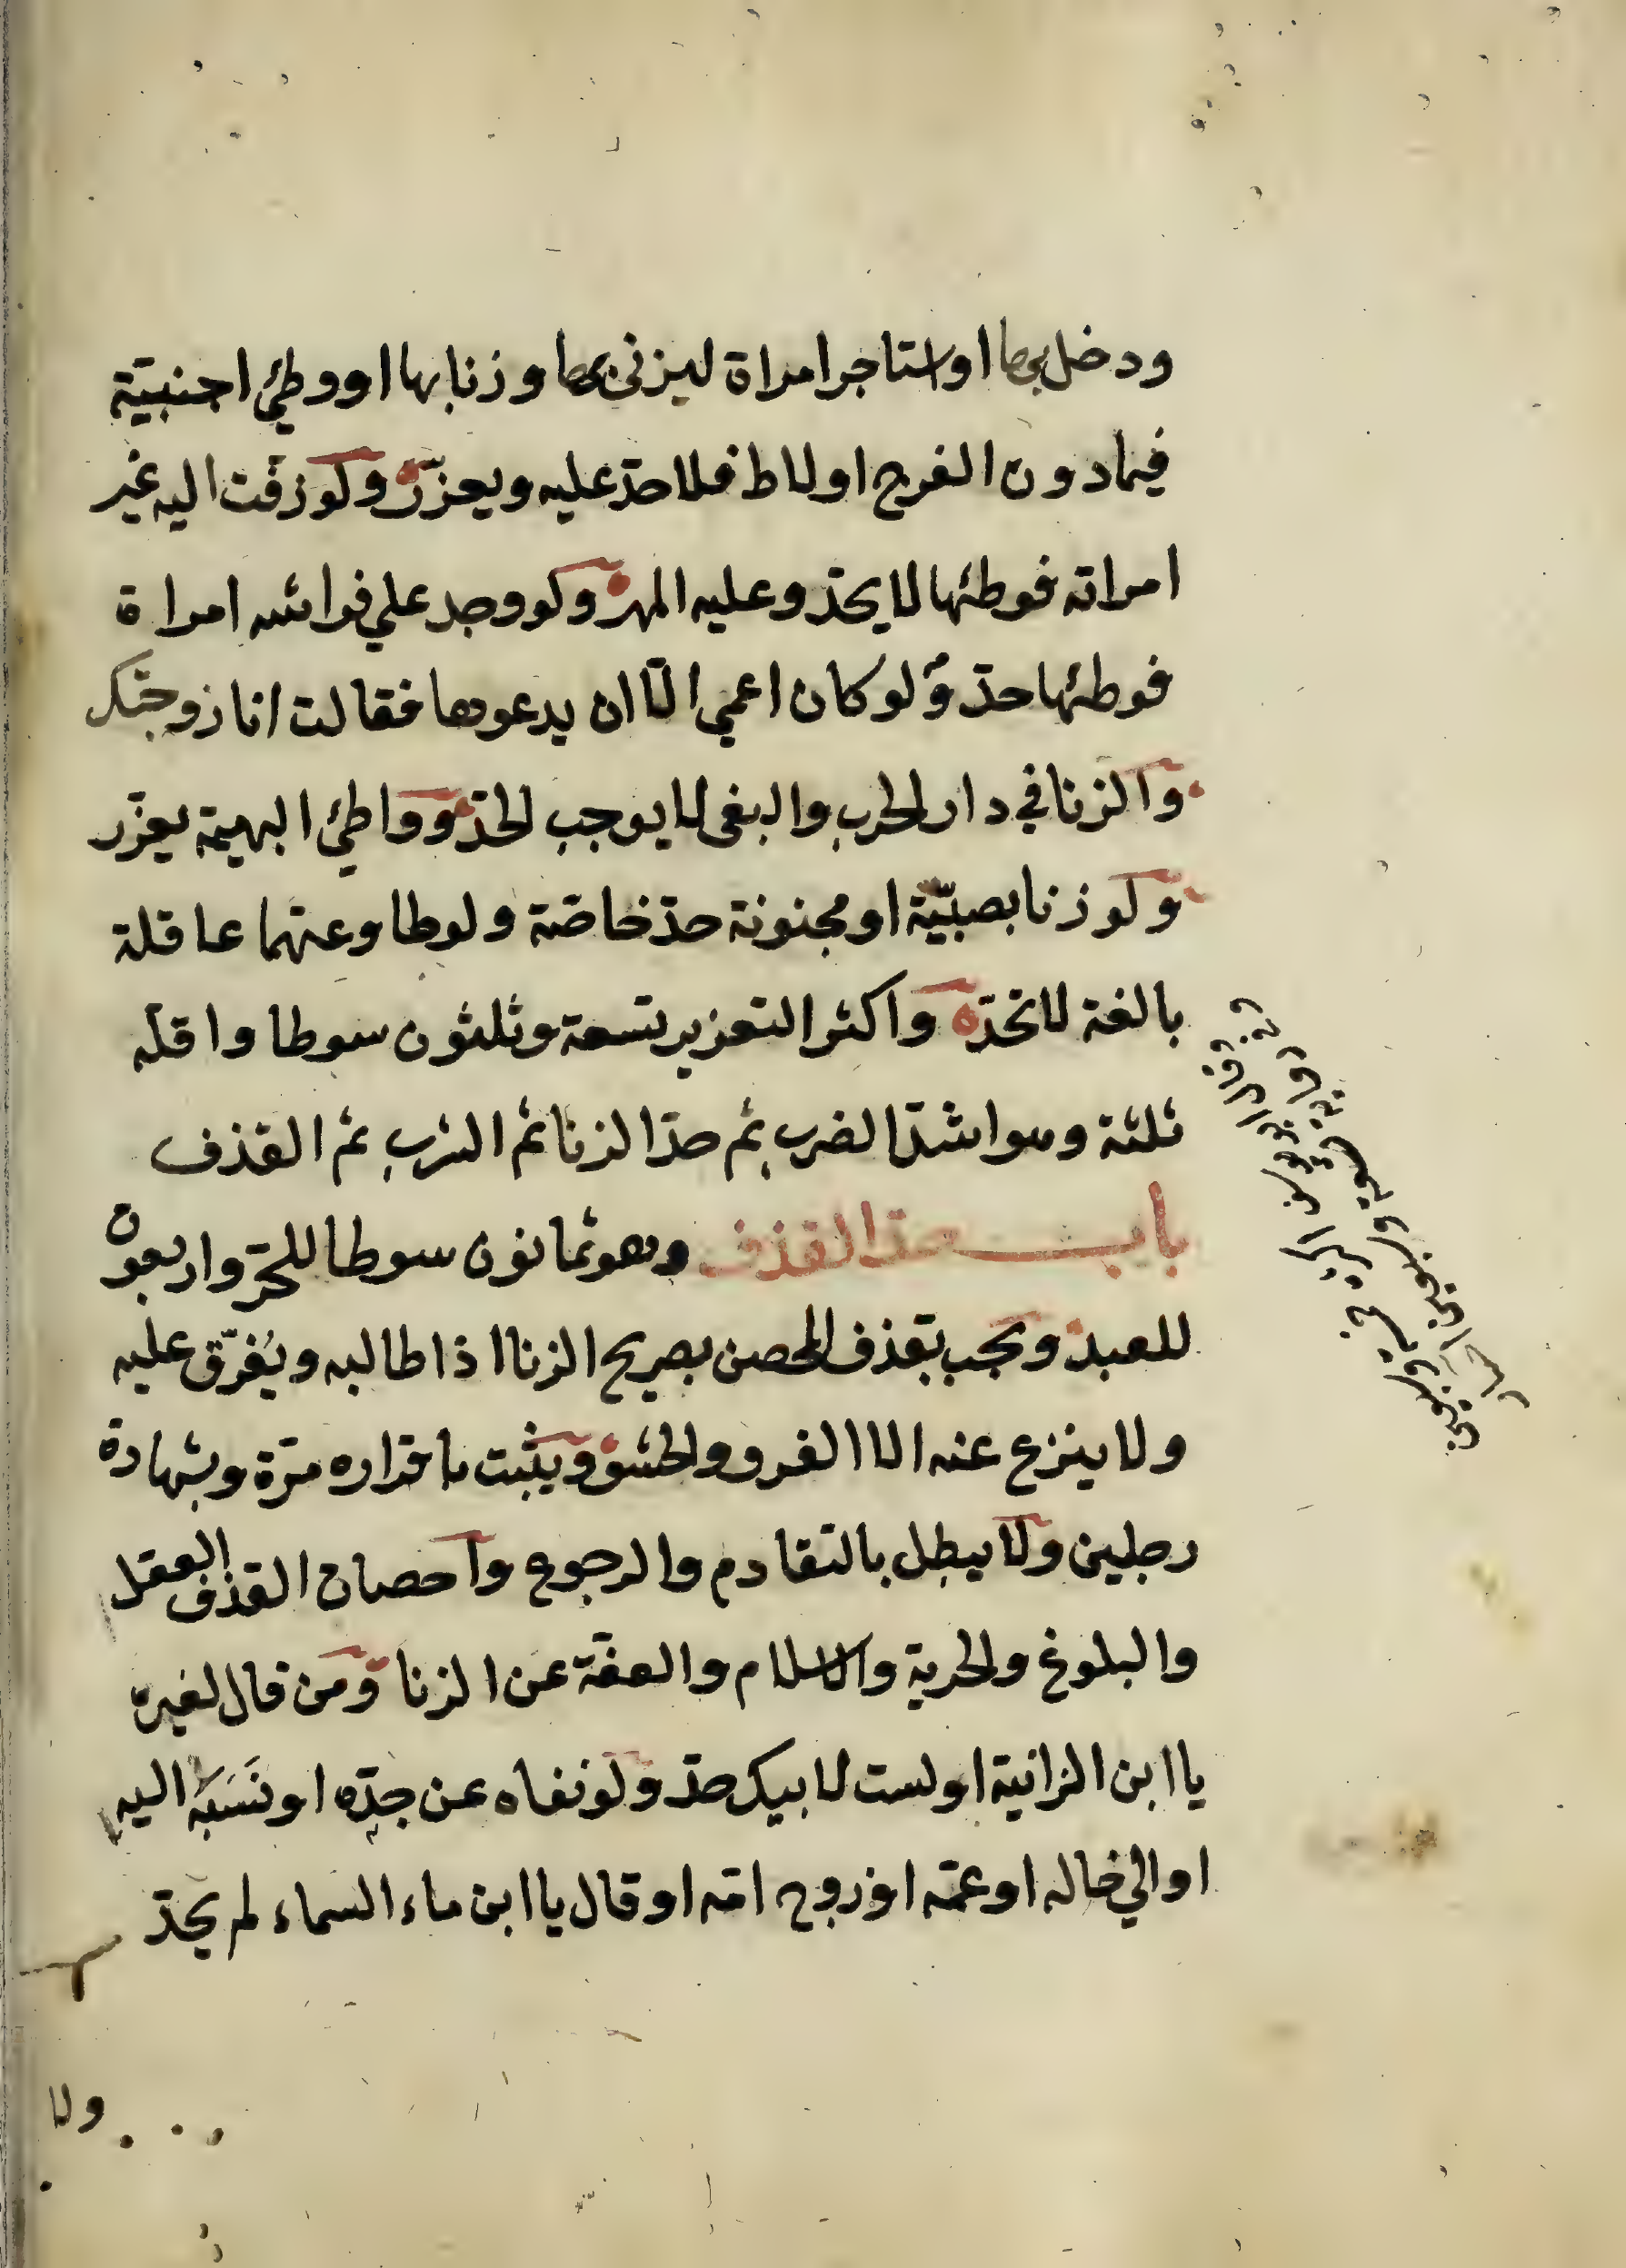 ودخل بها او استاجر امراة ليزني بها وزنا بها او وطئ اجنبيّة
فيما دون الفرج او لاط فلا حدّ عليه ويعزّر ولو زفّت اليه غير
امراته فوطئها لا يحدّ وعليه المهر ولو وجد علي فراشه امراة
فوطئها حدّ ولو كان اعمي الّا ان يدعوها فقالت انا زوجتك
والزنا في دار الحرب والبغي لا يوجب الحدّ وواطئ البهيمة يعزّر
ولو زنا بصبيّة او مجنونة حدّ خاصّة ولو طاوعتهما عاقلة
بالغة لا تحدّ واكثر التعزير تسعة وثلثون سوطا واقلّه
ثلثة وهو اشدّ الضرب ثم حدّ الزنا ثم الشرب ثم القذف
باب حدّ القذف وهو ثمانون سوطا للحرّ واربعون
للعبد ويجب بقذف المحصن بصريح الزنا اذا طالبه ويُفرّق عليه
ولا ينزع عنه الا الفرو والحشو ويثبت باقراره مرّة وبشهادة
رجلين ولا يبطل بالتقادم والرجوع واحصان القذف العقل
والبلوغ والحرية والاسلام والعفّة عن الزنا ومن قال لغيره
يا ابن الزانية او لست لابيك حدّ ولو نفاه عن جدّه او نَسَبَه اليه
او الي خاله او عمّه او زوج امّه او قال يا ابن ماء السماء لم يحدّ
ولا